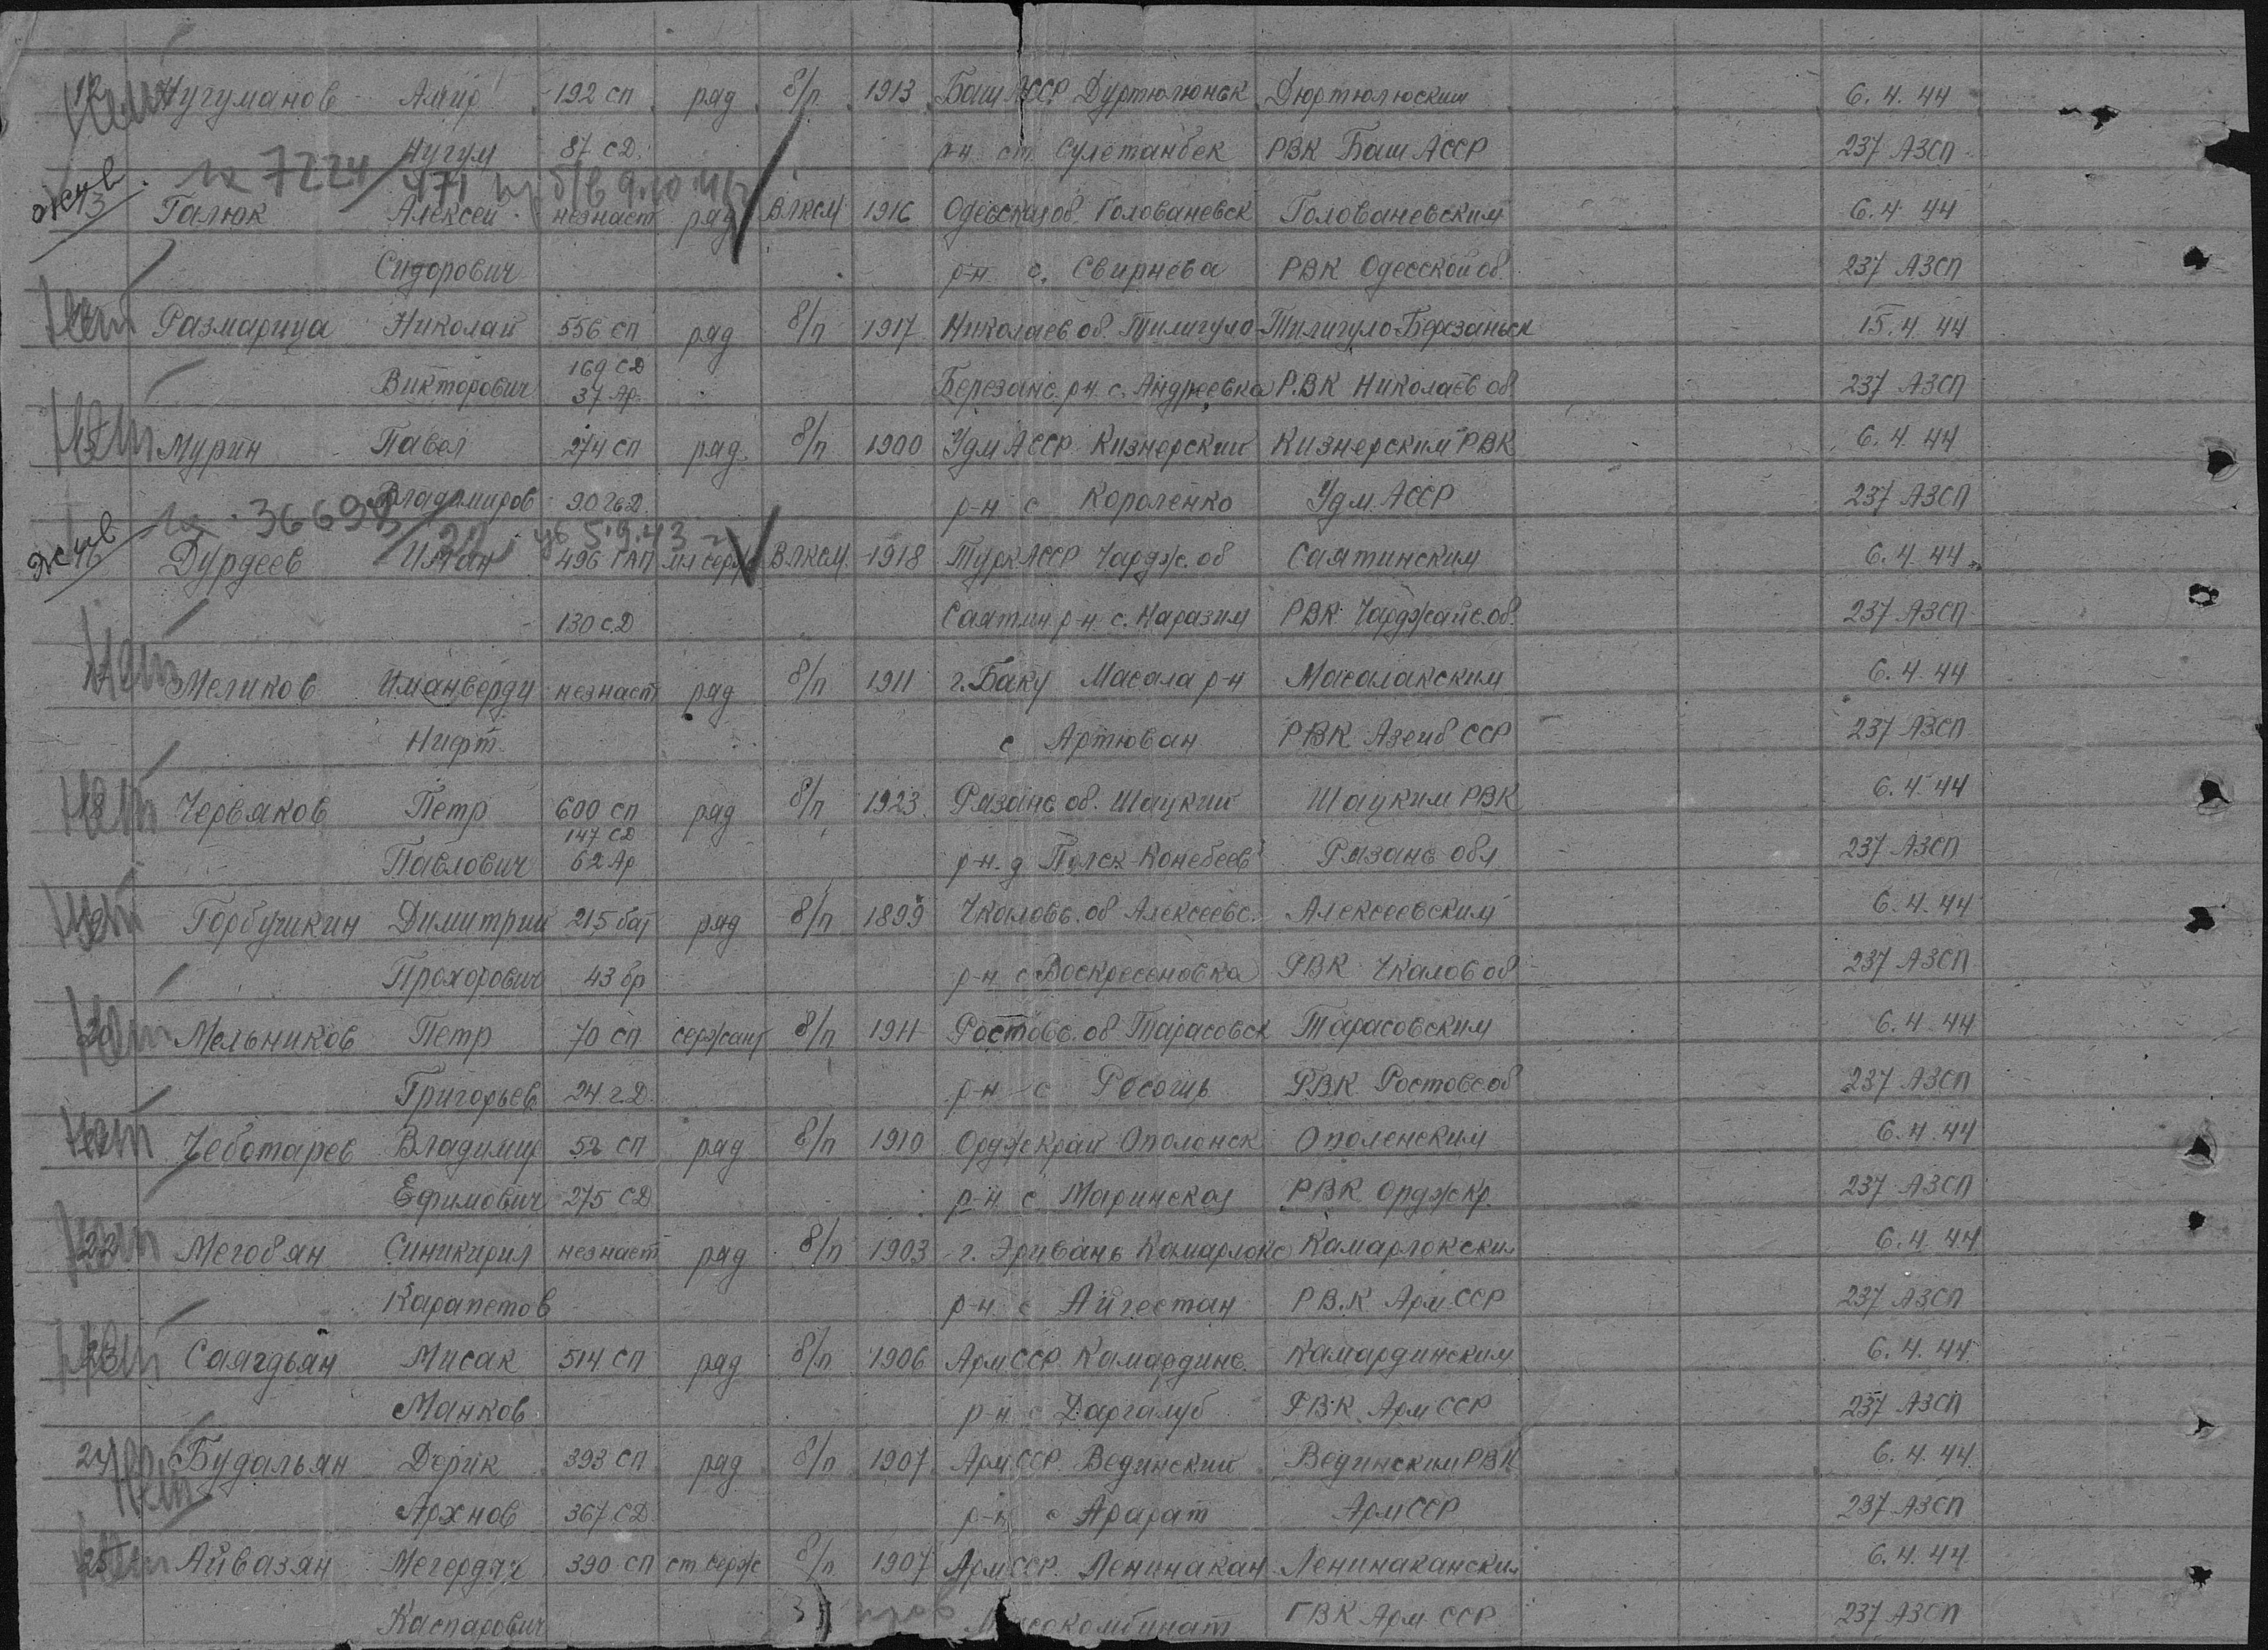 12 Нугуманов Амир 192 сп ряд б/п 1913 Баш АССР Дуртюлюньк Дюртюлюским 6.4.44
Нет
Нугум 87 СД р-н ст Сулетанбек РВК Баш АССР 237 АЗСП
7224 471 9.10.41
жив
13 Галюк Алексей незнает ряд ВЛКСМ 1916 Одесская об Голованевск Голованевским 6.4.44
Сидорович р-н с. Свирнева РВК Одесской об. 237 АЗСП
Нет
Размарица Николай 556 сп ряд б/п 1917 Николаев об. Тилигуло- Тилигуло Березаньск 15.4.44
169 СД
Викторович 37 Ар. Березанс. р-н с. Андреевка Р.ВК Николаев об 237 АЗСП
Нет
Мурин Павел 274 сп ряд. б/п 1900 Удм АССР Кизнерский Кизнерским РВК 6.4.44
Владимиров 90 гв Д. р-н с Короленко Удм АССР 237 АЗСП
36693 5.9.43
жив
16 Дурдеев Иман 496 ГАП мл серж ВЛКСМ 1918 Турк АССР Чардж. об Саятинским 6.4.44
130 с.Д Саятин. р-н. с. Наразим РВК Чарджайс. об. 237 АЗСП
Нет
Меликов Иманверди незнает ряд б/п 1911 г. Баку Масала р-н Масалакским 6.4.44
Нифт. с Артюван РВК Азерб ССР 237 АЗСП
Нет
18 Червяков Петр 600 сп ряд б/п 1923 Рязанс об. Шацкий Шацким РВК 6.4.44
147 СД
Павлович 62 Ар р-н. д Польск-Конебеев Рязанс обл 237 АЗСП
Нет
19 Горбушкин Димитрий 215 бат ряд б/п 1899 Чкаловс. об Алексеевс. Алексеевским 6.4.44
Прохорович 43 бр р-н с Воскресеновка РВК Чкалов об 237 АЗСП
Нет
20 Мельников Петр 70 сп сержант б/п 1911 Ростовс. об Тарасовск Тарасовским 6.4.44
Григорьев 24 г.Д. р-н с Росошь РВК Ростовс об 237 АЗСП
Нет
Чеботарев Владимир 52 сп ряд б/п 1910 Орджекрай Ополонск Ополенским 6.4.44
Ефимович 275 СД р-н с Маринская РВК Орджкр. 237 АЗСП
Нет
22 Мегобян Синикирил незнает ряд б/п 1903 г. Эривань Камарлокс Камарлокским 6.4.44
Карапетов р-н с Айгестан РВ.К Арм.ССР 237 АЗСП
Нет
23 Саягдьян Мисак 514 СП ряд б/п 1906 Арм ССР Камардинс. Камардинским 6.4.44
Манков р-н с Даргалуб РВК Арм ССР 237 АЗСП
24 Будальян Дерик 393 СП ряд б/п 1907 Арм ССР Вединский Вединским РВК 6.4.44
Нет
Архнов 367 СД р-н с Арарат Арм ССР 237 АЗСП
Нет
25 Айвазян Мегердич 390 сп ст серж б/п 1907 Арм ССР. Ленинакан Ленинакански 6.4.44
Каспарович Мясокомбинат ГВК Арм ССР 237 АЗСП